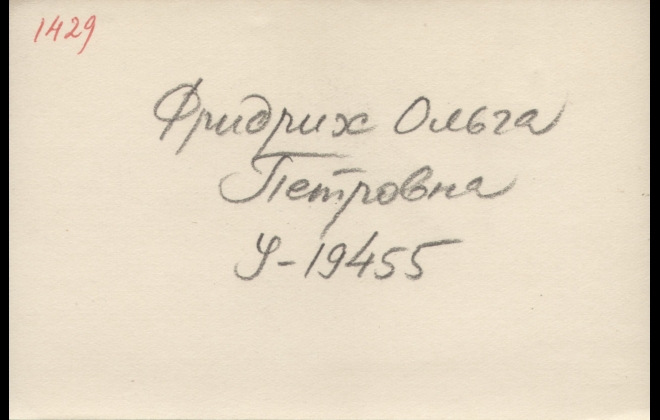 1429
Фридрих Ольга
Петровна
У-19455